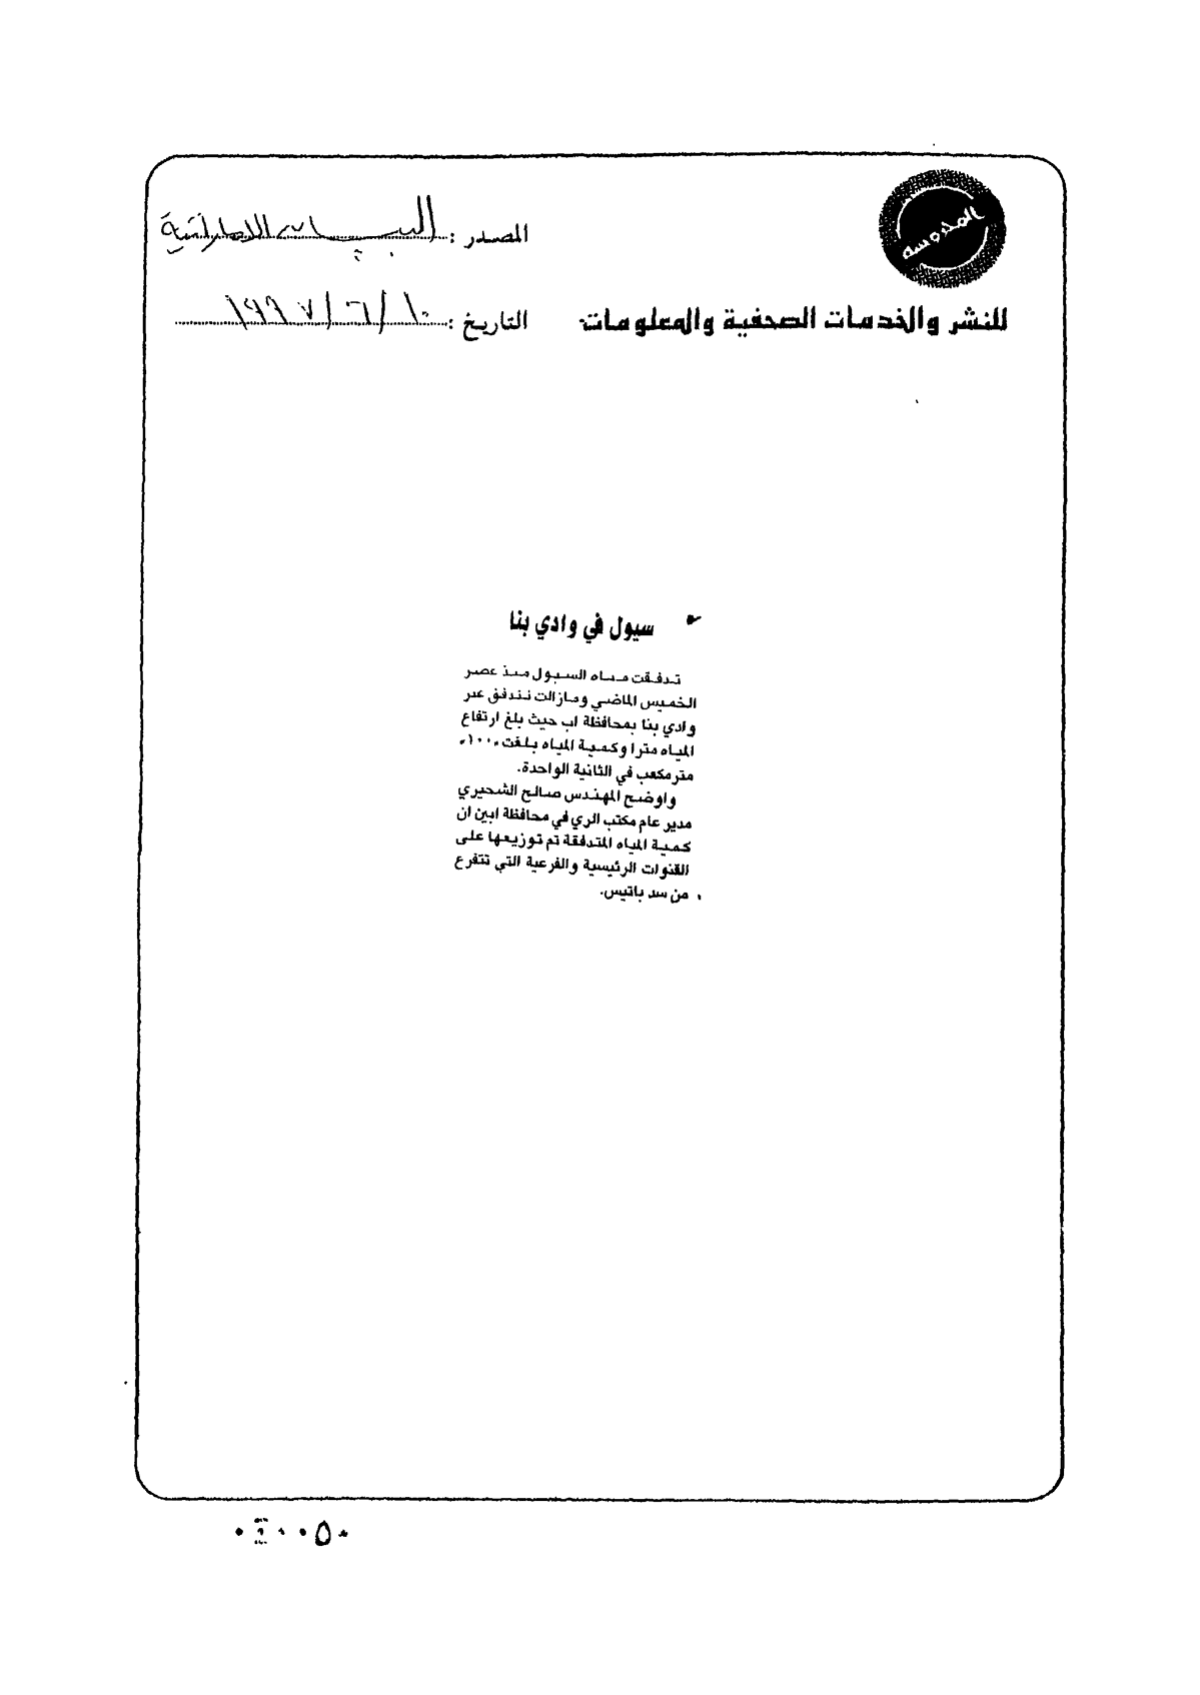 المحروسة
للنشر والخدمات الصحفية والمعلومات
المصدر : البيان الاماراتية
التاريخ : ١٩٩٧/٦/١٠
سيول في وادي بنا
تدفقت مياه السيول منذ عصر
الخميس الماضي ومازالت تتدفق عبر
وادي بنا بمحافظة اب حيث بلغ ارتفاع
المياه مترا وكمية المياه بلغت «١٠٠»
متر مكعب في الثانية الواحدة.
واوضح المهندس صالح الشحيري
مدير عام مكتب الري في محافظة ابين ان
كمية المياه المتدفقة تم توزيعها على
القنوات الرئيسية والفرعية التي تتفرع
من سد باتيس.